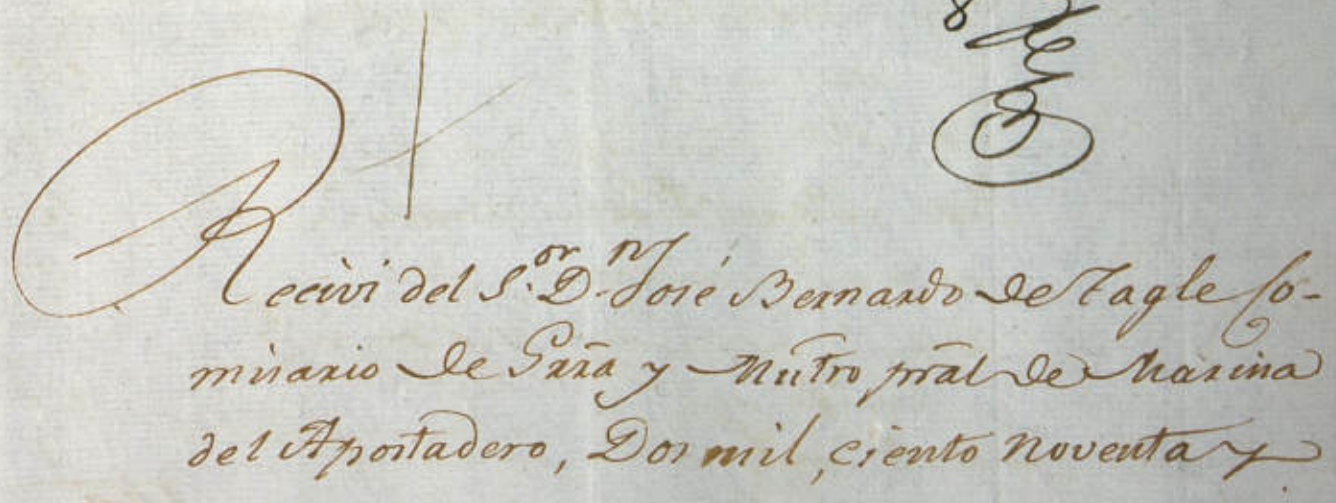 Recivi del S.or D.n José Bernardo de Tagle Co-
misario de Grra y Mntro pral de Marina
del Apostadero, Dos mil, ciento noventa y